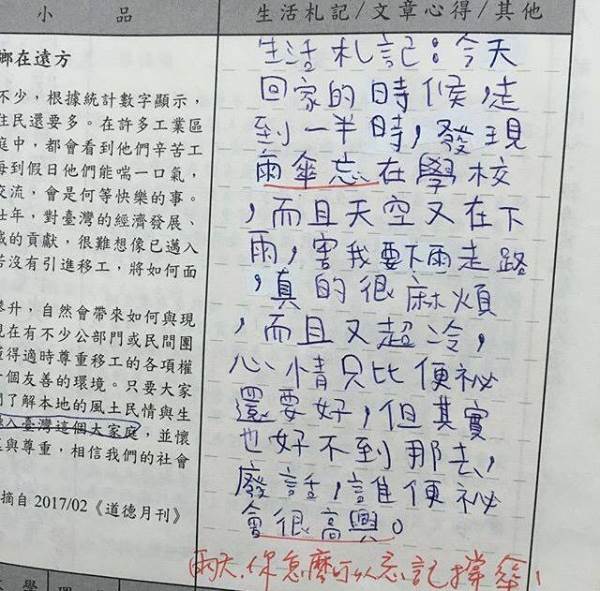 小品
生活札記/文章心得/其他
鄉在遠方
不少，根據統計數字顯示，
住民還要多。在許多工業區
庭中，都會看到他們辛苦工
每到假日他們能喘一口氣，
交流，會是何等快樂的事。
壯年，對臺灣的經濟發展、
的貢獻，很難想像已邁入
若沒有引進移工，將如何面
攀升，自然會帶來如何與現
現在有不少公部門或民間團
懂得適時尊重移工的各項權
個友善的環境。只要大家
們了解本地的風土民情與生
入臺灣這個大家庭，並懷
與尊重，相信我們的社會
摘自2017/02《道德月刊》
生活札記：今天
回家的時候，走
到一半時，發現
雨傘忘在學校
，而且天空又在下
雨，害我要下雨走路
，真的很麻煩
，而且又超冷，
心情只比便祕
還要好，但其實
也好不到那去，
廢話，誰便祕
會很高興。
雨天，你怎麼可以忘記撐傘！